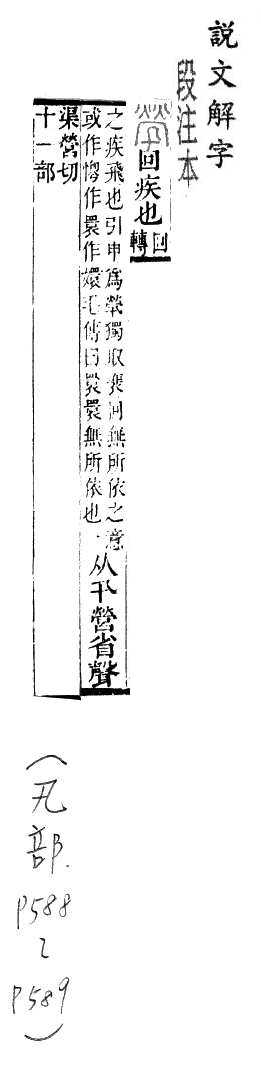 説文解字
段注本
煢回疾也回轉
之疾飛也引申爲煢獨取褱回無所依之意
或作惸作睘作嬛毛傳曰睘睘無所依也。从卂營省聲
渠營切
十一部
(卂部.
P588
~
P589
)